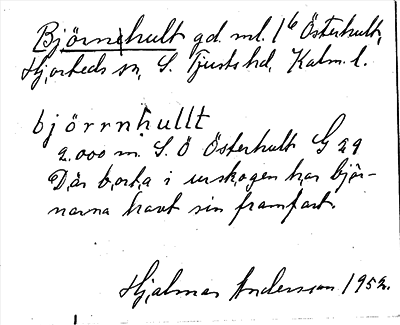 Björnehult gd. ml. 16 Österhult,
Hjorteds sn, S. Tjusts hd, Kalm. l.
björrnhullt
2.000 m. S. Ö Österhult G 29
Där borta i urskogen har björ-
narna havt sin framfart.
Hjalmar Andersson 1952.